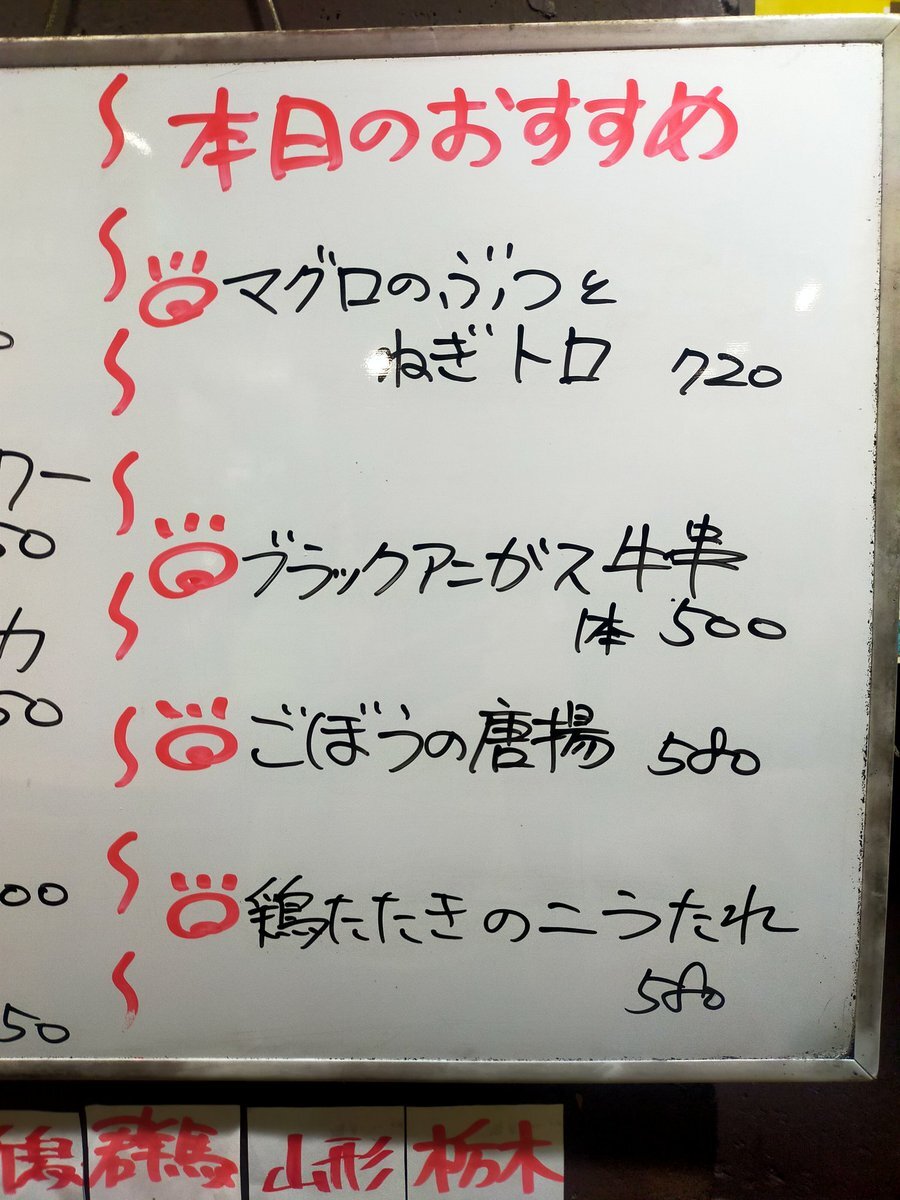 本日のおすすめ
マグロのぶつと
ねぎトロ 720
ブラックアンガス牛串
1本 500
ごぼうの唐揚 580
鶏たたきのこうたれ
580
ワー
50
カ
50
00
50
潟 群馬 山形 栃木